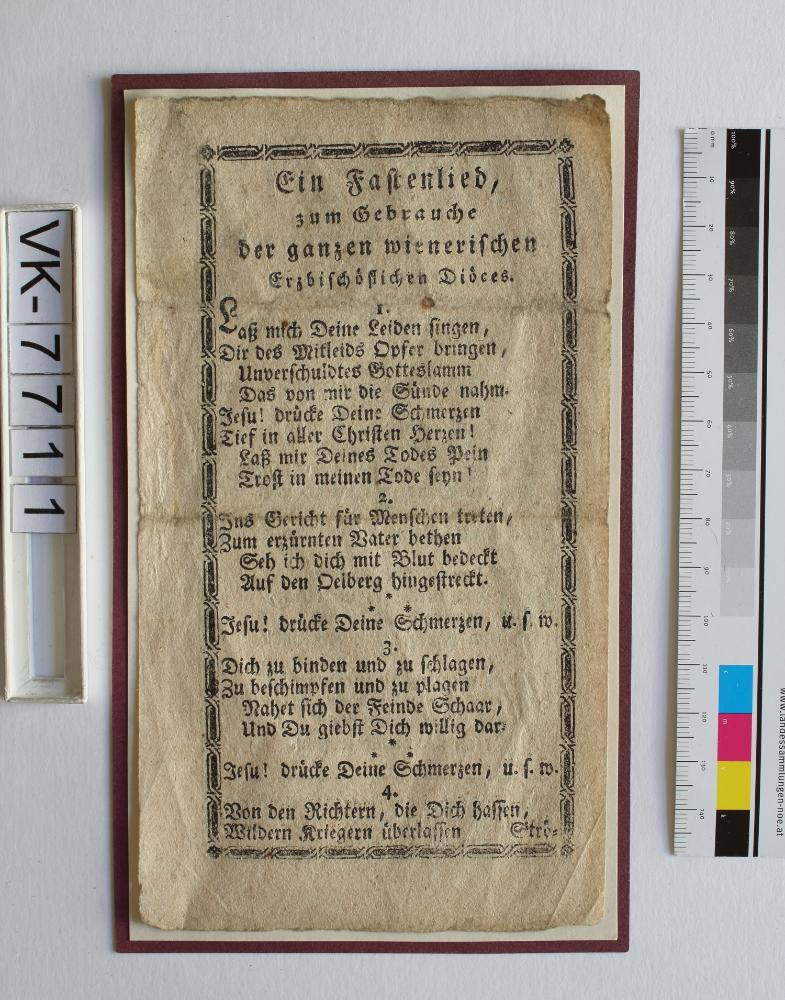 Ein Fastenlied,
zum Gebrauche
der ganzen wienerischen
Erzbischöflichen Diöces.
1.
Laß mich Deine Leiden singen,
Dir des Mitleids Opfer bringen,
Unverschuldtes Gotteslamm
Das von mir die Sünde nahm.
Jesu! drücke Deine Schmerzen
Tief in aller Christen Herzen!
Laß mir Deines Todes Pein
Trost in meinen Tode seyn!
2.
Ins Gericht für Menschen treten,
Zum erzürnten Vater bethen
Seh ich dich mit Blut bedeckt
Auf den Oelberg hingestreckt.
*
* *
Jesu! drücke Deine Schmerzen, u. s. w.
3.
Dich zu binden und zu schlagen,
Zu beschimpfen und zu plagen
Nahet sich der Feinde Schaar,
Und Du giebst Dich willig dar.
*
* *
Jesu! drücke Deine Schmerzen, u. s. w.
4.
Von den Richtern, die Dich hassen,
Wildern Kriegern überlassen Strö-
VK-7711
0 mm
10
20
30
40
50
60
70
80
90
100
110
120
130
140
100%
90%
80%
70%
60%
50%
40%
30%
20%
c
m
y
k
www.landessammlungen-noe.at